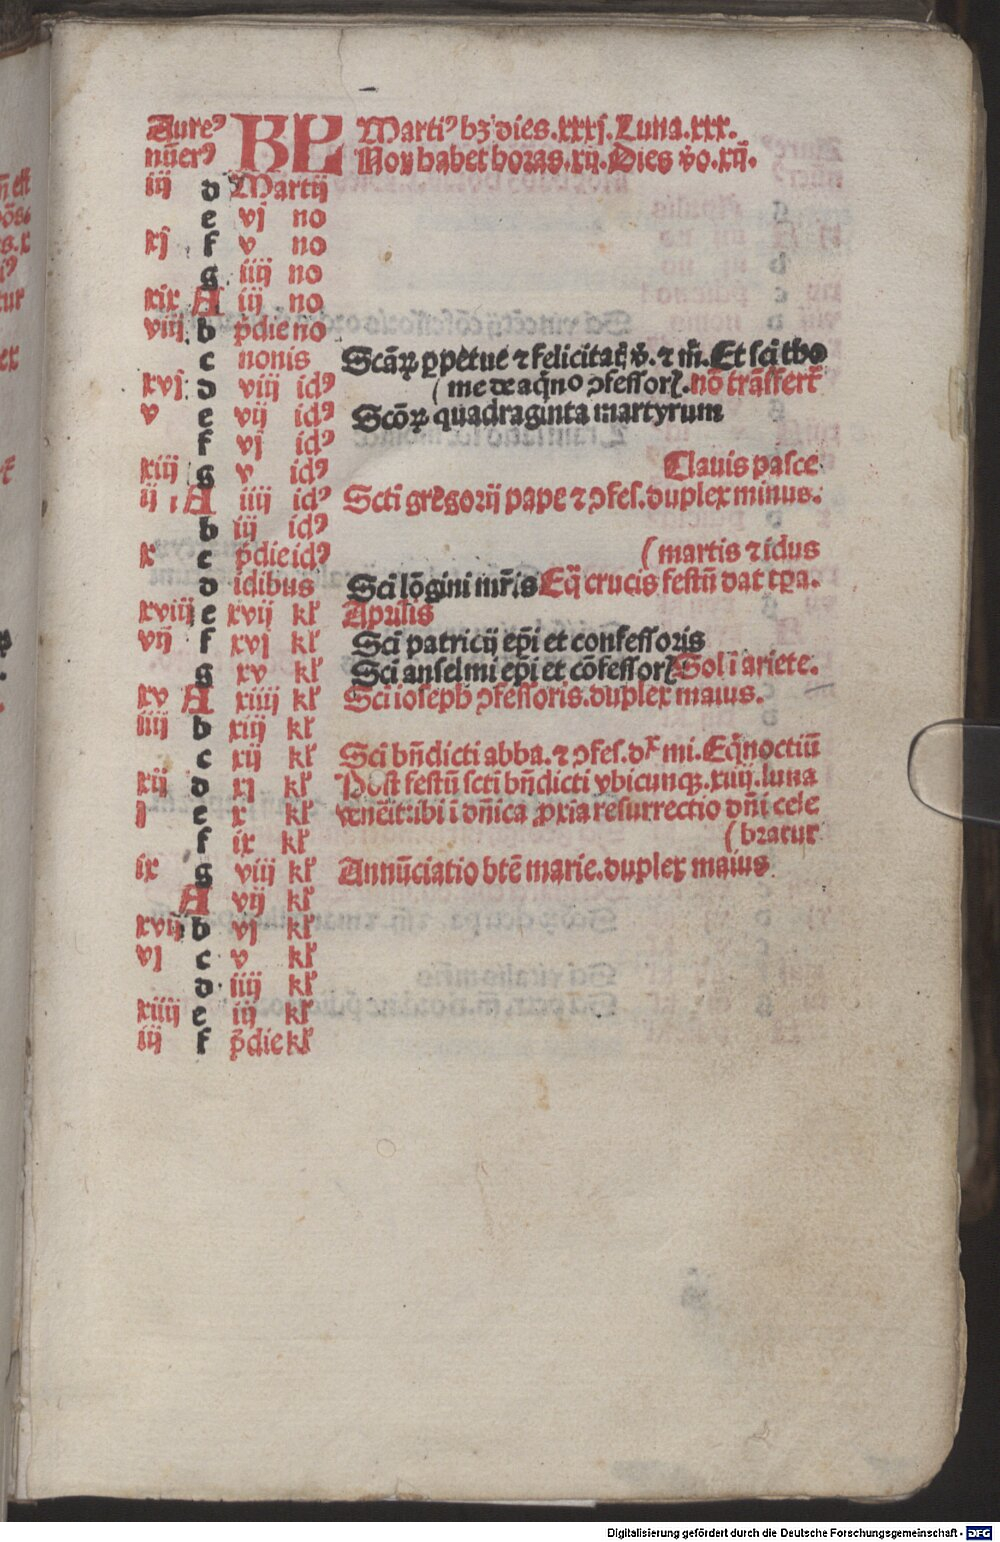 Aureꝰ KL Martiꝰ hꝫ dies.xxxj.Luna.xxx.
nũerꝰ Nox habet horas.xij.Dies v̾o.xij.
iij d Martij
e vj no
xj f v no
g iiij no
xix A iij no
viij b p̃die no
c nonis Scãꝝ ꝑpetue ⁊ felicitat̃ v̾. ⁊ m̃.Et sc̃i tho
xvj d viij idꝰ (me de aq̃no ↄfessorꝭ.nõ trãsfert᷑
v e vij idꝰ Scõꝝ quadraginta martyrum
f vj idꝰ
xiij g v idꝰ Clauis pasce
ij A iiij idꝰ Scti gregorij pape ⁊ ↄfes.duplex minus.
b iij idꝰ
x c p̃die idꝰ (martis ⁊ idus
d idibus Sci lõgini mr̃is Eq̃ crucis festũ dat tp̃a.
xviij e xvij kł Aprilis
vij f xvj kł Sci patricij ep̃i et confessoris
g xv kł Sci anselmi ep̃i et cõfessorꝭ Sol ĩ ariete.
xv A xiiij kł Sci ioseph ↄfessoris.duplex maius.
iiij b xiij kł
c xij kł Sci bñdicti abba. ⁊ ↄfes.dx̃ mi. Eq̃noctiũ
xij d xj kł Post festũ scti bñdicti vbicunqꝫ.xiiij.luna
j e x kł venẽit:ibi ĩ dñica ꝓxia resurrectio dñi cele
f ix kł (bratur
ix g viij kł Annũciatio btẽ marie.duplex maius
A vij kł
xvij b vj kł
vj c v kł
d iiij kł
xiiij e iij kł
iij f p̃die kł
Digitalisierung gefördert durch die Deutsche Forschungsgemeinschaft - DFG